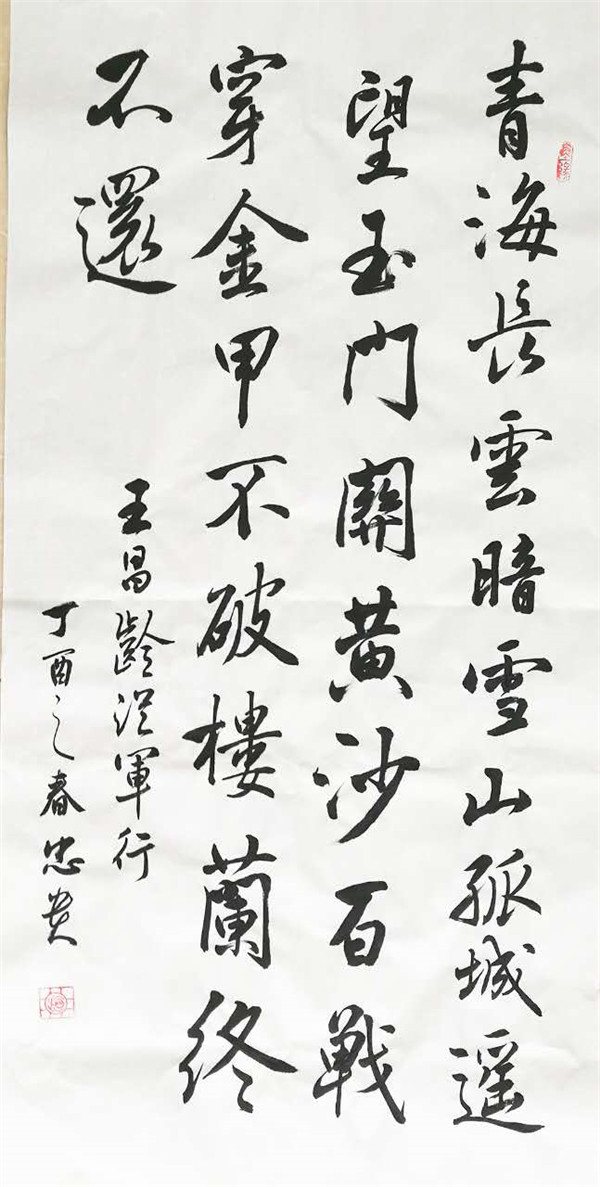 青海長雲暗雪山孤城遥
望玉門關黄沙百戦
穿金甲不破樓蘭終
不還
王昌齡從軍行
丁酉之春忠貴